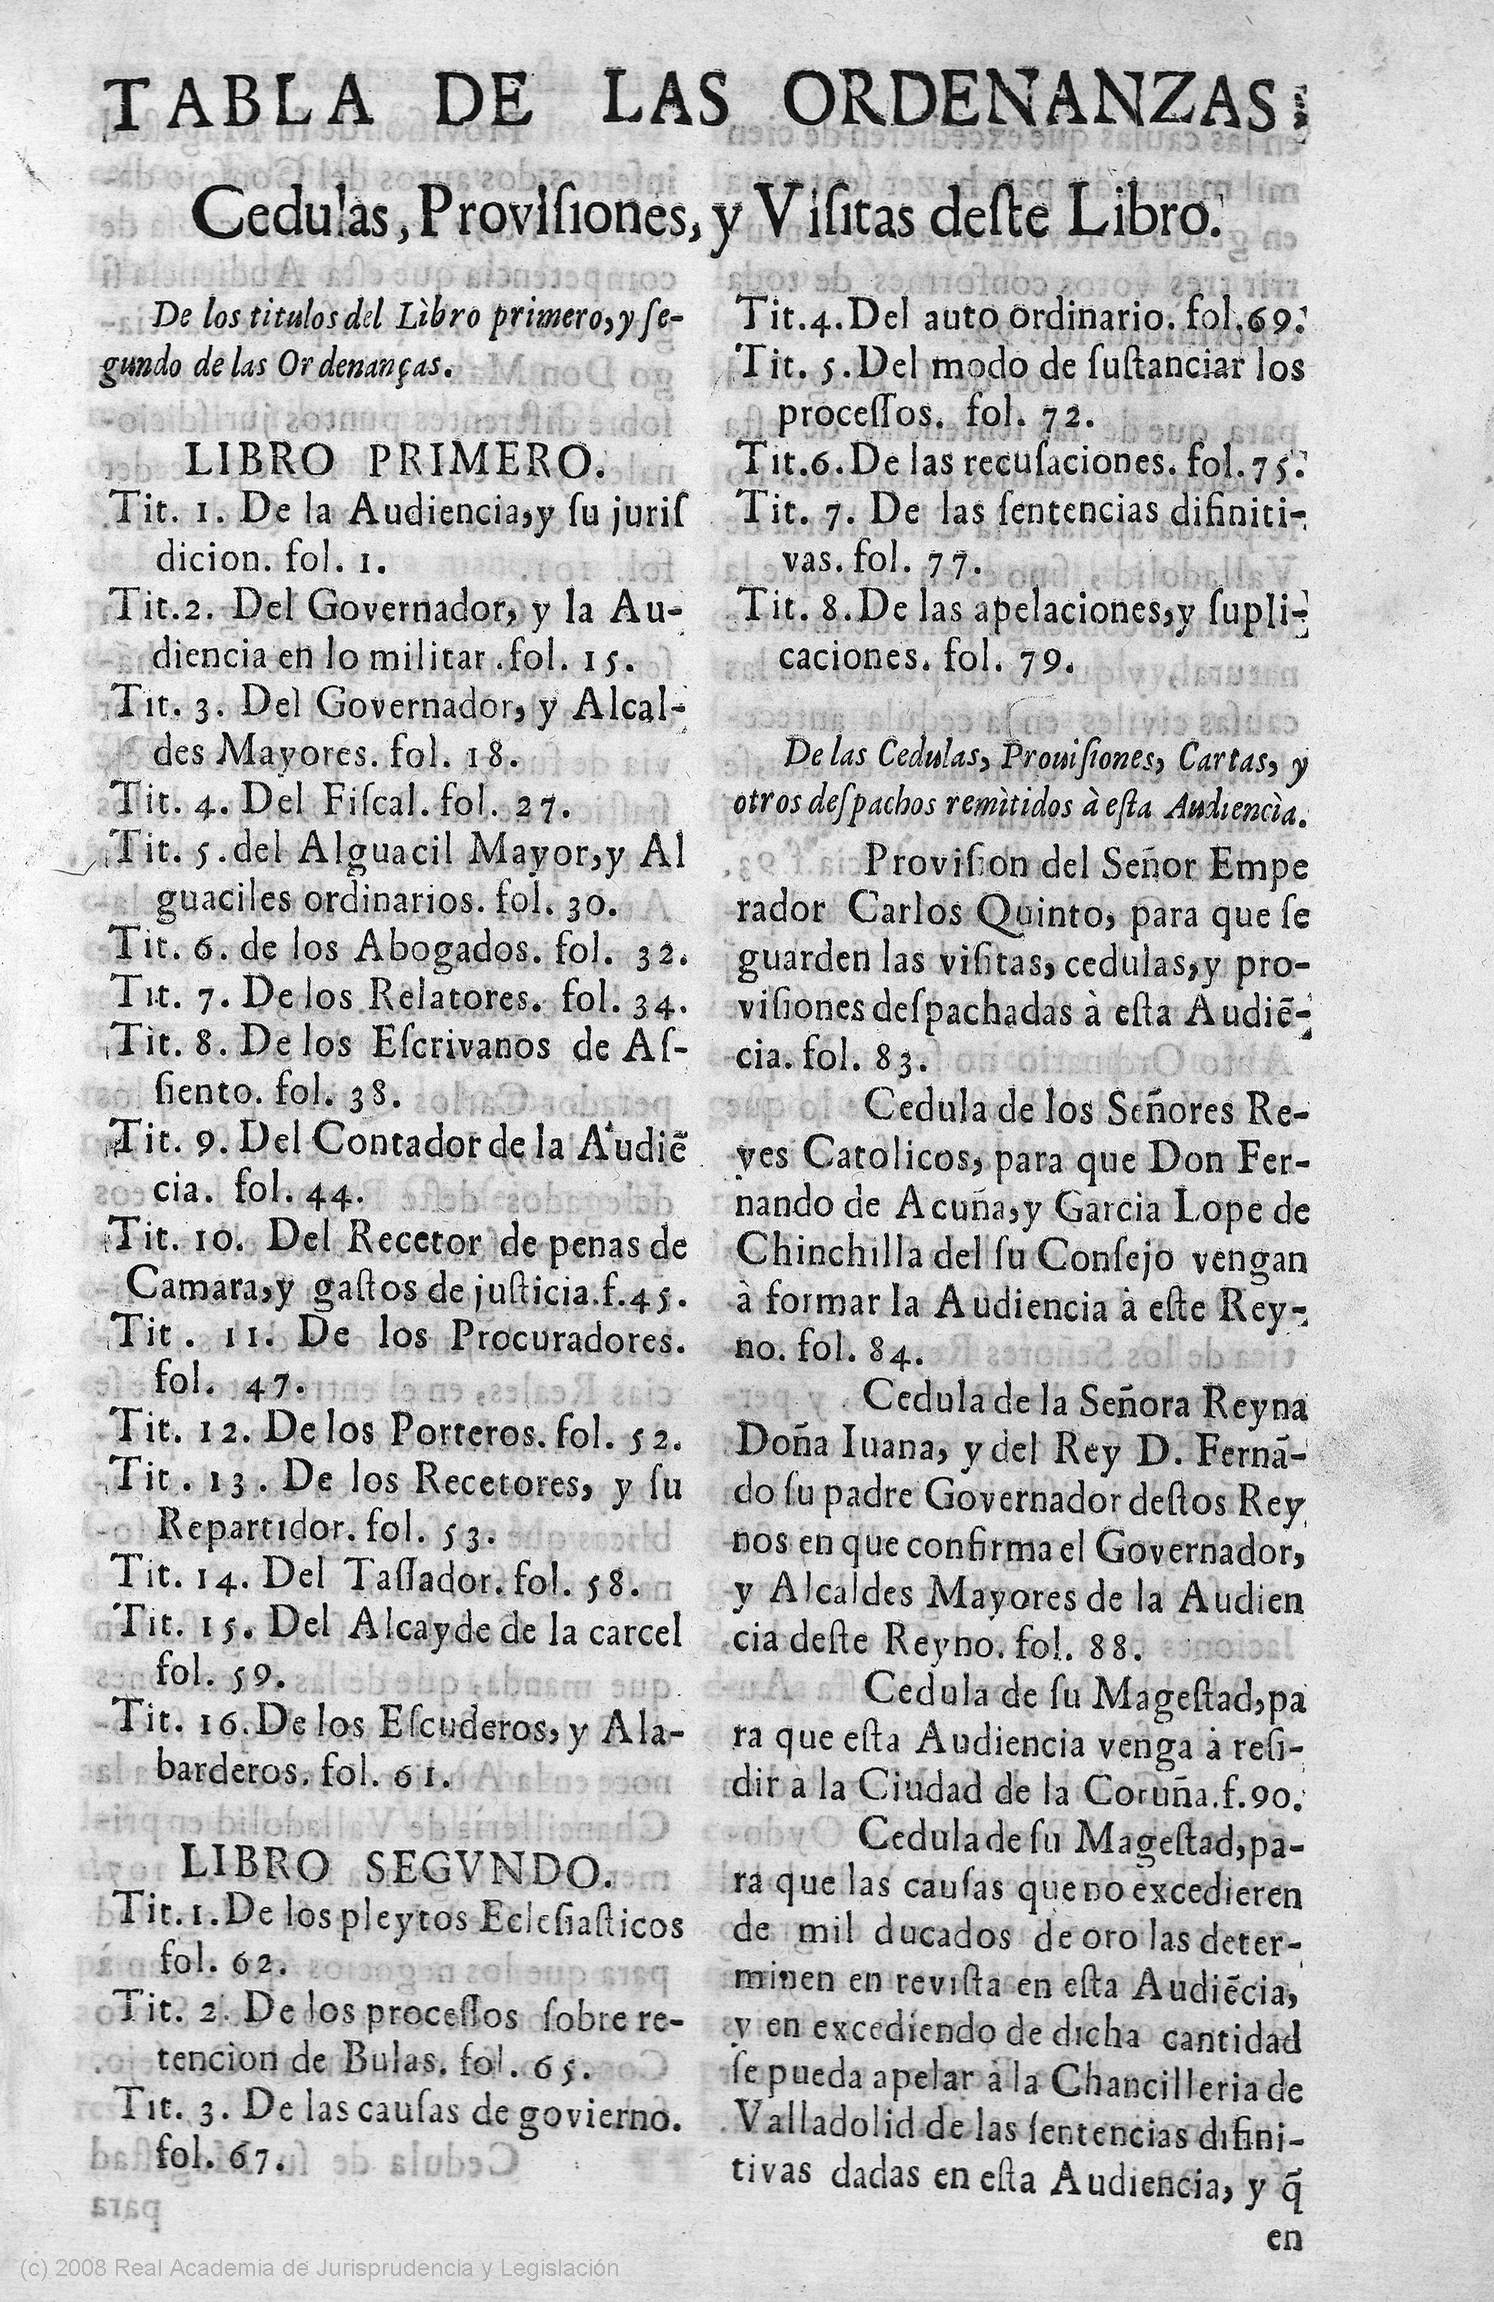 TABLA DE LAS ORDENANZAS:
Cedulas, Provisiones, y Visitas deste Libro.
De los titulos del Libro primero, y ſe-
gundo de las Ordenanças.
LIBRO PRIMERO.
Tit. 1. De la Audiencia, y ſu juriſ
dicion. fol. 1.
Tit. 2. Del Governador, y la Au-
diencia en lo militar. fol. 15.
Tit. 3. Del Governador, y Alcal-
des Mayores. fol. 18.
Tit. 4. Del Fiſcal. fol. 27.
Tit. 5. del Alguacil Mayor, y Al
guaciles ordinarios. fol. 30.
Tit. 6. de los Abogados. fol. 32.
Tit. 7. De los Relatores. fol. 34.
Tit. 8. De los Eſcrivanos de Aſ-
ſiento. fol. 38.
Tit. 9. Del Contador de la Audiē
cia. fol. 44.
Tit. 10. Del Recetor de penas de
Camara, y gaſtos de juſticia. f. 45.
Tit. 11. De los Procuradores.
fol. 47.
Tit. 12. De los Porteros. fol. 52.
Tit. 13. De los Recetores, y ſu
Repartidor. fol. 53.
Tit. 14. Del Taſſador. fol. 58.
Tit. 15. Del Alcayde de la carcel
fol. 59.
Tit. 16. De los Eſcuderos, y Ala-
barderos. fol. 61.
LIBRO SEGVNDO.
Tit. 1. De los pleytos Ecleſiaſticos
fol. 62.
Tit. 2. De los proceſſos ſobre re-
tencion de Bulas. fol. 65.
Tit. 3. De las cauſas de govierno.
fol. 67.
Tit. 4. Del auto ordinario. fol. 69.
Tit. 5. Del modo de ſuſtanciar los
proceſſos. fol. 72.
Tit. 6. De las recuſaciones. fol. 75.
Tit. 7. De las ſentencias difiniti-
vas. fol. 77.
Tit. 8. De las apelaciones, y ſupli-
caciones. fol. 79.
De las Cedulas, Prouiſiones, Cartas, y
otros deſpachos remìtidos à eſta Audiencìa.
Proviſion del Señor Empe
rador Carlos Quinto, para que ſe
guarden las viſitas, cedulas, y pro-
viſiones deſpachadas à eſta Audiē-
cia. fol. 83.
Cedula de los Señores Re-
yes Catolicos, para que Don Fer-
nando de Acuña, y Garcia Lope de
Chinchilla del ſu Conſejo vengan
à formar la Audiencia à eſte Rey-
no. fol. 84.
Cedula de la Señora Reyna
Doña Iuana, y del Rey D. Fernā-
do ſu padre Governador deſtos Rey
nos en que confirma el Governador,
y Alcaldes Mayores de la Audien
cia deſte Reyno. fol. 88.
Cedula de ſu Mageſtad, pa
ra que eſta Audiencia venga à reſi-
dir à la Ciudad de la Coruña. f. 90.
Cedula de ſu Mageſtad, pa-
ra que las cauſas que no excedieren
de mil ducados de oro las deter-
minen en reviſta en eſta Audiēcia,
y en excediendo de dicha cantidad
ſe pueda apelar à la Chancilleria de
Valladolid de las ſentencias difini-
tivas dadas en eſta Audiencia, y q̃
en
(c) 2008 Real Academia de Jurisprudencia y Legislación